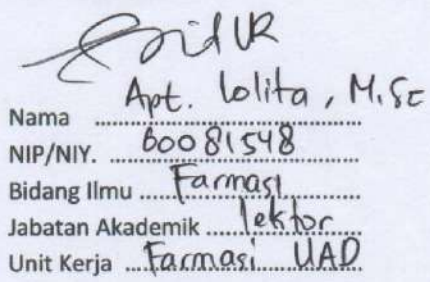 Nama Apt. Lolita, M.Sc
NIP/NIY. 60081548
Bidang Ilmu Farmasi
Jabatan Akademik lektor
Unit Kerja Farmasi UAD